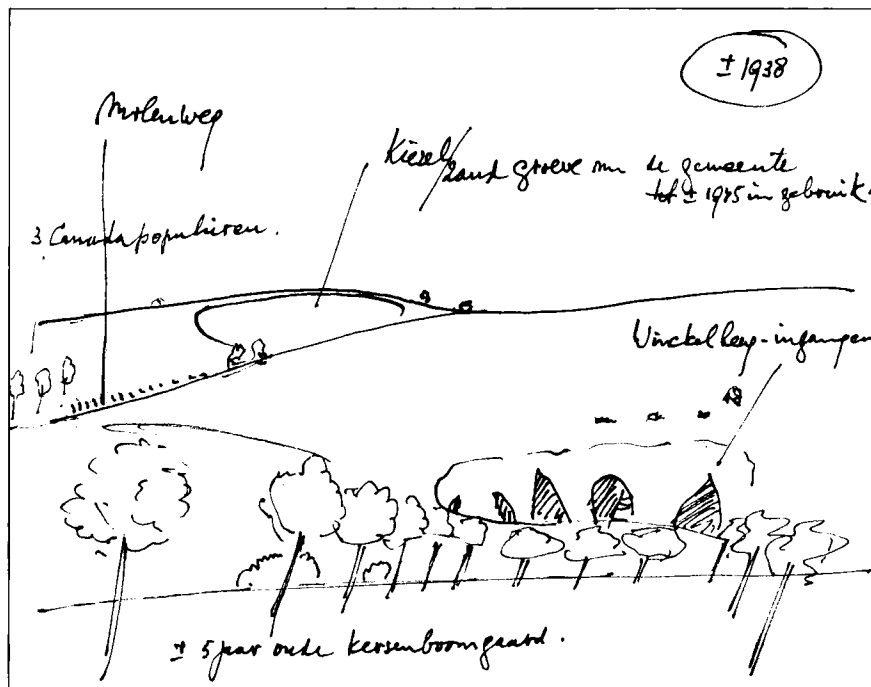 ± 1938
Molenweg
Kiezel/zand groeve van de gemeente
tot ± 1975 in gebruik.
3 Canadapopulieren.
Vinckelberg-ingangen
± 5 jaar oude kersenboomgaard.